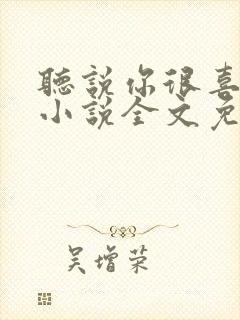 聽說你很喜
小說全文免
吴增荣